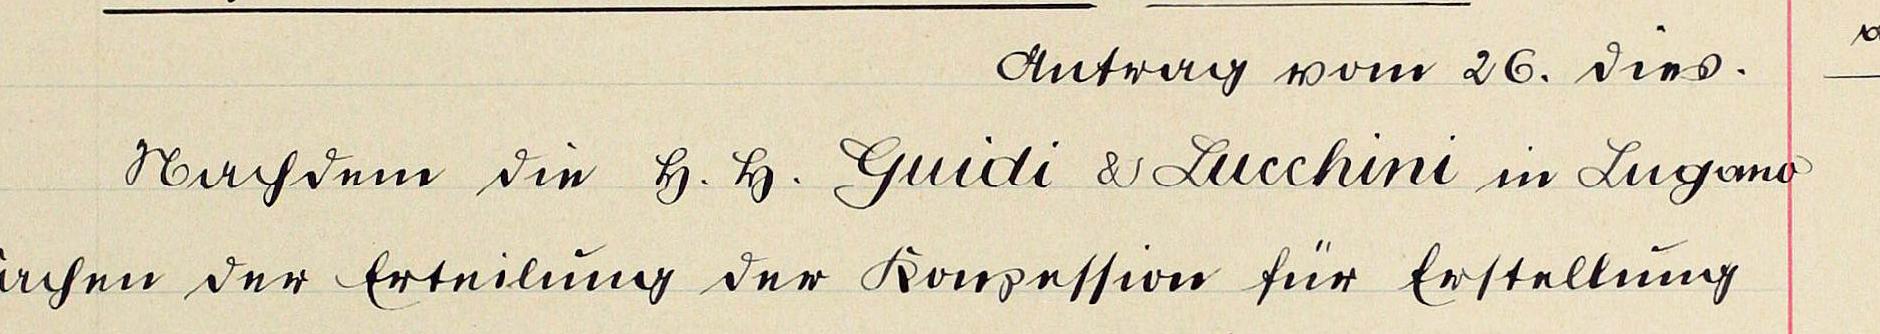 Antrag vom 26. dies.
Nachdem die H. H. Guidi & Lucchini in Lugano
der Erteilung der Konzession für Erstellung